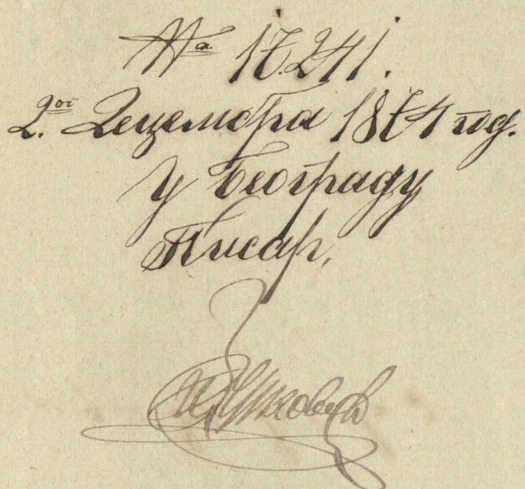 № 17.241.
2.ог Децембра 1874 год.
у Београду
Писар,